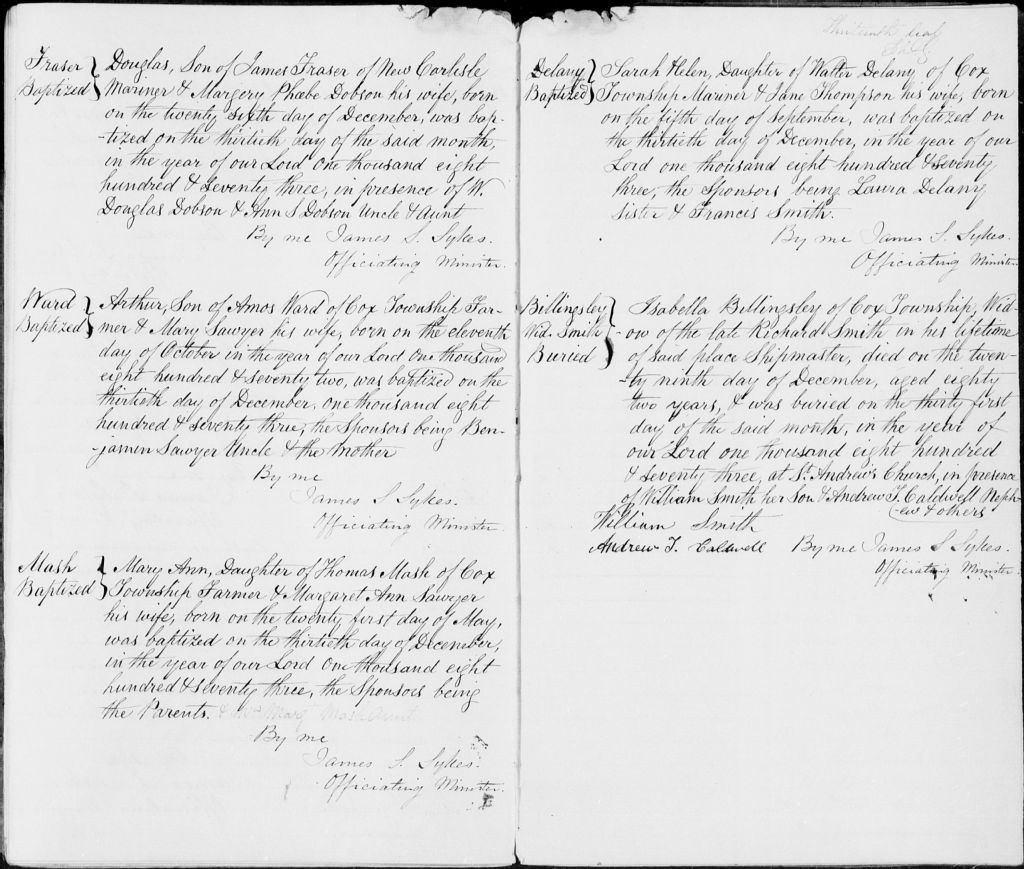 Fraser
Baptized
Douglas, Son of James Fraser of New Carlisle
Mariner & Margery Phœbe Dobson his wife, born
on the twenty sixth day of December, was bap-
-tized on the thirtieth day of the said month,
in the year of our Lord one thousand eight
hundred & seventy three, in presence of W.
Douglas Dobson & Ann S. Dobson Uncle & Aunt
By me James S. Sykes.
Officiating Minister.
Ward
Baptized
Arthur, Son of Amos Ward of Cox Township Far-
mer & Mary Sawyer his wife, born on the eleventh
day of October in the year of our Lord one thousand
eight hundred & seventy two, was baptized on the
thirtieth day of December, one thousand eight
hundred & seventy three, the Sponsors being Ben-
-jamin Sawyer Uncle & the mother
By me
James S Sykes.
Officiating Minister
Mash
Baptized
Mary Ann, Daughter of Thomas Mash of Cox
Township Farmer & Margaret Ann Sawyer
his wife, born on the twenty first day of May,
was baptized on the thirtieth day of December,
in the year of our Lord one thousand eight
hundred & seventy three, the Sponsors being
the Parents. Mary Mash Aunt
By me
James S. Sykes.
Officiating Minister.
Thirteenth leaf
Delany
Baptized
Sarah Helen, Daughter of Walter Delany of Cox
Township Mariner & Jane Thompson his wife, born
on the fifth day of September, was baptized on
the thirtieth day of December, in the year of our
Lord one thousand eight hundred & seventy
three, the Sponsors being Laura Delany
Sister & Francis Smith.
By me James S. Sykes.
Officiating Minister.
Billingsley
Wid. Smith
Buried
Isabella Billingsley of Cox Township, Wid-
-ow of the late Richard Smith in his lifetime
of said place Shipmaster, died on the twen-
-ty ninth day of December, aged eighty
two years, & was buried on the thirty first
day of the said month, in the year of
our Lord one thousand eight hundred
& seventy three, at St. Andrew's Church, in presence
of William Smith her Son & Andrew T. Caldwell Neph-
-ew & others
William Smith
Andrew T. Caldwell By me James S Sykes.
Officiating Minister